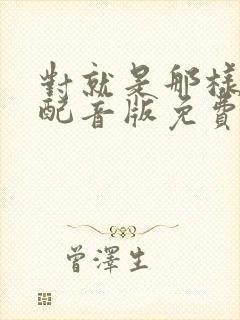 對就是那樣
配音版免費
曾澤生